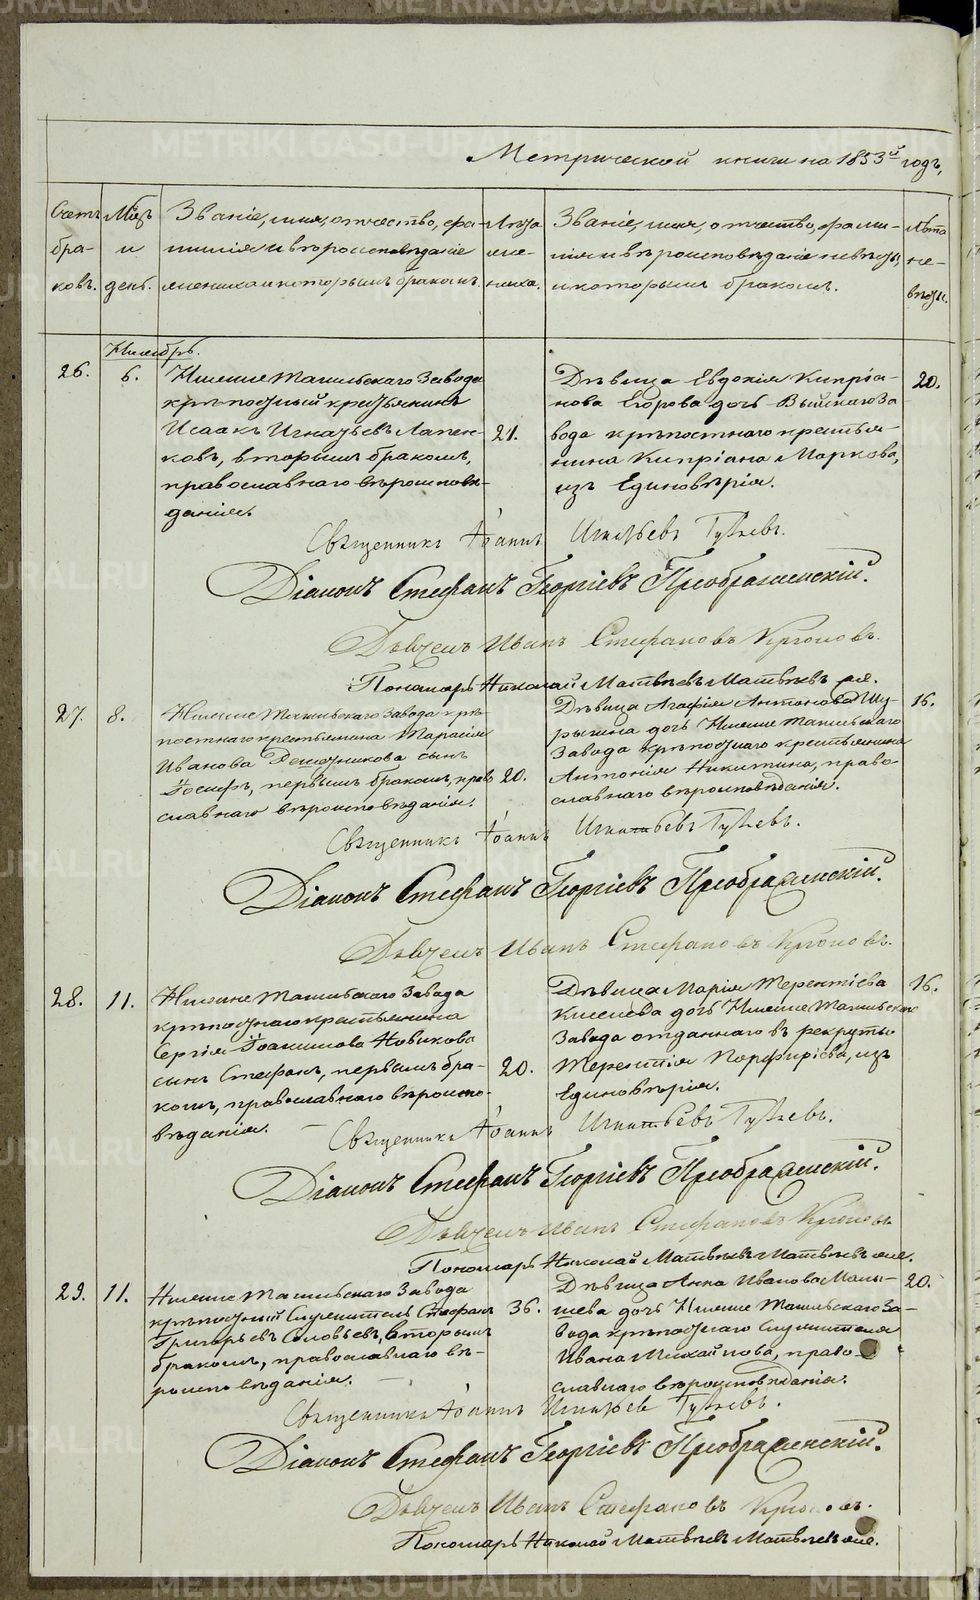 METRIKI.GASO-URAL.RU
Метрической книги на 1853й годъ,
Счетъ браковъ.
Мѣсяцъ и день.
Званіе, имя, отчество, фамилія и вѣроисповѣданіе жениха и которымъ бракомъ.
Лѣта жениха.
Званіе, имя, отчество, фамилія и вѣроисповѣданіе невѣсты, и которымъ бракомъ.
Лѣта невѣсты.
Ноябрь.
26.
6.
Нижне Тагильскаго Завода
крѣпостный крестьянинъ
Исаакъ Игнатьевъ Лапен-
ковъ, вторымъ бракомъ,
православнаго вѣроисповѣ-
данія.
21.
Дѣвица Евдокія Кипріа-
нова Егорова дочь Выйскаго За
вода крѣпостнаго крестья-
нина Кипріана Маркова,
изъ Единовѣрія.
20.
Священникъ Іоаннъ Игнатьевъ
Діаконъ Стефанъ Георгіевъ Преображенскій.
Дьячекъ Иванъ Стефановъ
Пономарь Николай Матвѣевъ Матвѣевъ
27.
8.
Нижне Тагильскаго Завода крѣ-
постнаго крестьянина Тарасія
Иванова сынъ
Іосифъ, первымъ бракомъ, право
славнаго вѣроисповѣданія.
20.
Дѣвица Агафія Антонова Шу-
рыгина дочь Нижне Тагильскаго
Завода крѣпостнаго крестьянина
Антонія Никитина, право-
славнаго вѣроисповѣданія.
16.
Священникъ Іоаннъ Игнатьевъ
Діаконъ Стефанъ Георгіевъ Преображенскій.
Дьячекъ Иванъ Стефановъ
28.
11.
Нижне Тагильскаго Завода
крѣпостнаго крестьянина
Сергія Іоакимова Новикова
сынъ Стефанъ, первымъ бра-
комъ, православнаго вѣроиспо-
вѣданія.
20.
Дѣвица Марія Терентіева
Киселева дочь Нижне Тагильскаго
Завода отданнаго въ рекруты
Терентія Порфиріева, изъ
Единовѣрія.
16.
Священникъ Іоаннъ Игнатьевъ
Діаконъ Стефанъ Георгіевъ Преображенскій.
Дьячекъ Иванъ Стефановъ
Пономарь Николай Матвѣевъ Матвѣевъ
29.
11.
Нижне Тагильскаго Завода
крѣпостный Служитель Стефанъ
Григорьевъ Соловьевъ, вторымъ
бракомъ, православнаго вѣ-
роисповѣданія.
36.
Дѣвица Анна Иванова Малы-
шева дочь Нижне Тагильскаго За-
вода крѣпостнаго Служителя
Ивана Михайлова, право-
славнаго вѣроисповѣданія.
20.
Священникъ Іоаннъ Игнатьевъ
Діаконъ Стефанъ Георгіевъ Преображенскій.
Дьячекъ Иванъ Стефановъ
Пономарь Николай Матвѣевъ Матвѣевъ
METRIKI.GASO-URAL.RU